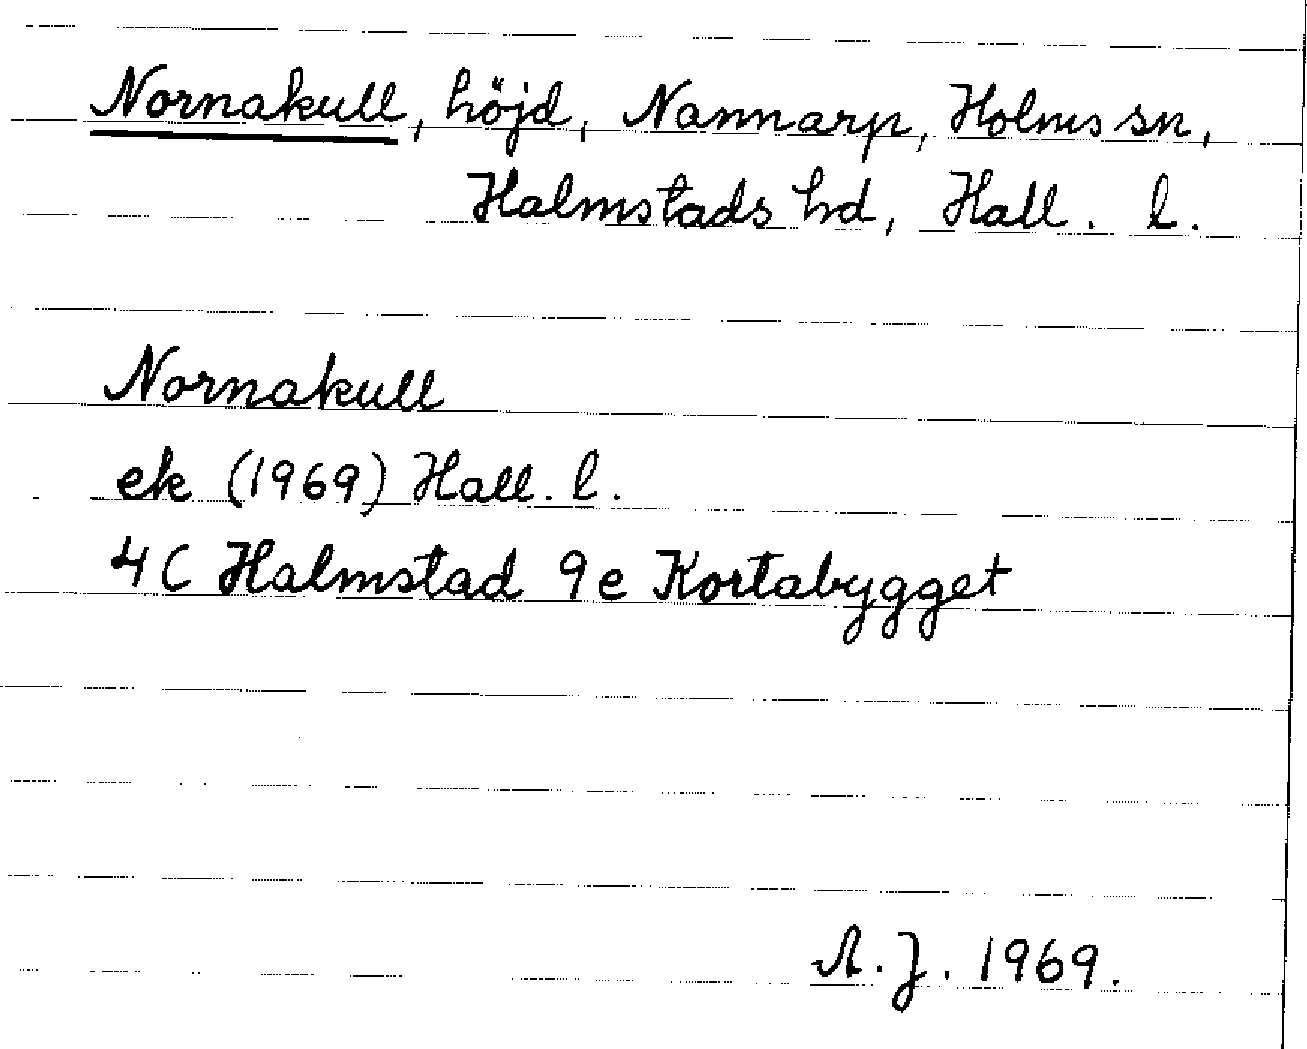 Nornakull, höjd, Nannarp, Holms sn,
Halmstads hd, Hall. l.
Nornakull
ek (1969) Hall. l.
4C Halmstad 9e Kortabygget
A. J. 1969.